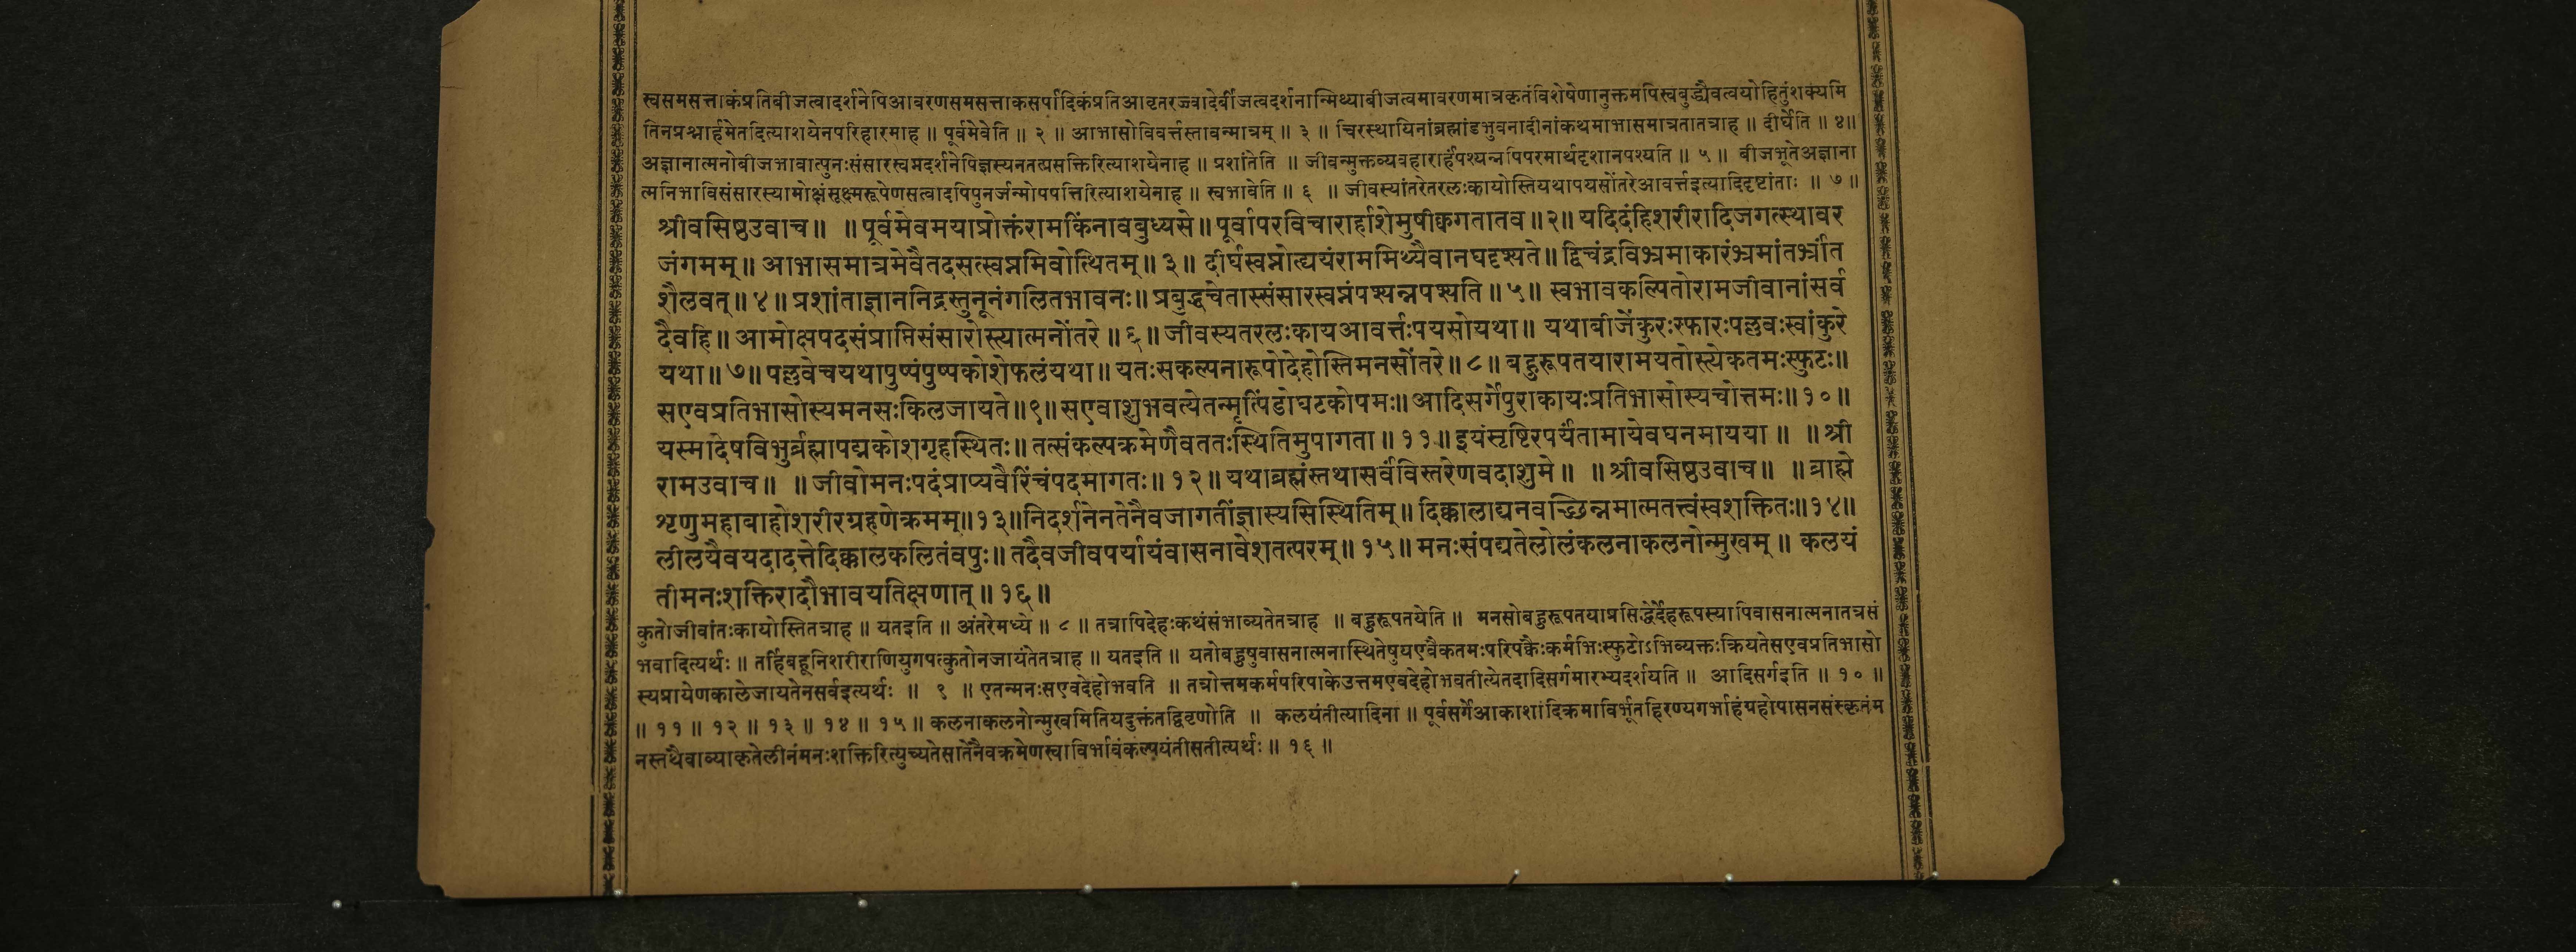 स्वसमसत्ताकंप्रतिबीजत्वादर्शनेपिआवरणसमसत्ताकसर्पादिकंप्रतिआवृतरज्ज्वादेर्बीजत्वदर्शनान्मिथ्याबीजत्वमावरणमात्रकृतंविशेषेणानुक्तमपिस्वबुद्ध्यैवत्वयोहितुंशक्यमि
तिनप्रश्नार्हमेतदित्याशयेनपरिहारमाह ॥ पूर्वमेवेति ॥ २ ॥ आभासोविवर्त्तस्तावन्मात्रम् ॥ ३ ॥ चिरस्थायिनांब्रह्मांडभुवनादीनांकथमाभासमात्रतातत्राह ॥ दीर्घेति ॥ ४॥
अज्ञानात्मनोबीजभावात्पुनःसंसारस्वप्नदर्शनेपिज्ञस्यनतत्प्रसक्तिरित्याशयेनाह ॥ प्रशांतेति ॥ जीवन्मुक्तव्यवहारार्हंपश्यन्नपिपरमार्थदृशानपश्यति ॥ ५ ॥ बीजभूतेअज्ञाना
त्मनिभाविसंसारस्यामोक्षंसूक्ष्मरूपेणसत्वादपिपुनर्जन्मोपपत्तिरित्याशयेनाह ॥ स्वभावेति ॥ ६ ॥ जीवस्यांतरेतरलःकायोस्तियथापयसोंतरेआवर्त्तइत्यादिदृष्टांताः ॥ ७ ॥
श्रीवसिष्ठउवाच ॥ ॥ पूर्वमेवमयाप्रोक्तंरामकिंनावबुध्यसे ॥ पूर्वापरविचारार्हाशेमुषीक्वगतातव ॥ २॥ यदिदंहिशरीरादिजगत्स्थावर
जंगमम् ॥ आभासमात्रमेवैतदसत्स्वप्नमिवोत्थितम् ॥ ३ ॥ दीर्घस्वप्नोत्थयंराममिथ्यैवानघदृश्यते ॥ द्विचंद्रविभ्रमाकारंभ्रमांतभ्रांत
शैलवत् ॥ ४ ॥ प्रशांताज्ञाननिद्रस्तुनूनंगलितभावनः ॥ प्रबुद्धचेतास्संसारस्वप्नंपश्यन्नपश्यति ॥ ५॥ स्वभावकल्पितोरामजीवानांसर्व
दैवहि ॥ आमोक्षपदसंप्राप्तिसंसारोस्त्यात्मनोंतरे ॥ ६ ॥ जीवस्यतरलःकायआवर्त्तःपयसोयथा ॥ यथाबीजेंकुरःस्फारःपल्लवःस्वांकुरे
यथा ॥ ७॥ पल्लवेचयथापुष्पंपुष्पकोशेफलंयथा ॥ यतःसकल्पनारूपोदेहोस्तिमनसोंतरे ॥ ८ ॥ बहुरूपतयारामयतोस्त्येकतमःस्फुटः ॥
सएवप्रतिभासोस्यमनसःकिलजायते ॥ ९॥ सएवाशुभवत्येतन्मृत्पिंडोघटकोपमः ॥ आदिसर्गेपुराकायःप्रतिभासोस्यचोत्तमः ॥ १० ॥
यस्मादेषविभुर्ब्रह्मापद्मकोशगृहस्थितः ॥ तत्संकल्पक्रमेणैवततःस्थितिमुपागता ॥ ११ ॥ इयंसृष्टिरपर्यंतामायेवघनमायया ॥ ॥ श्री
रामउवाच ॥ ॥ जीवोमनःपदंप्राप्यवैरिंचंपदमागतः ॥ १२ ॥ यथाब्रह्मंस्तथासर्वंविस्तरेणवदाशुमे ॥ ॥ श्रीवसिष्ठउवाच ॥ ॥ ब्राह्मे
शृणुमहाबाहोशरीरग्रहणेक्रमम् ॥ १३ ॥ निदर्शनेनतेनैवजागतींज्ञास्यसिस्थितिम् ॥ दिक्कालाद्यनवच्छिन्नमात्मतत्त्वंस्वशक्तितः ॥ १४ ॥
लीलयैवयदादत्तेदिक्कालकलितंवपुः ॥ तदैवजीवपर्यायंवासनावेशतत्परम् ॥ १५ ॥ मनःसंपद्यतेलोलंकलनाकलनोन्मुखम् ॥ कलयं
तीमनःशक्तिरादौभावयतिक्षणात् ॥ १६ ॥
कुतोजीवांतःकायोस्तितत्राह ॥ यतइति ॥ अंतरेमध्ये ॥ ८ ॥ तत्रापिदेहःकथंसंभाव्यतेतत्राह ॥ बहुरूपतयेति ॥ मनसोबहुरूपतयाप्रसिद्धेर्देहरूपस्यापिवासनात्मनातत्रसं
भवादित्यर्थः ॥ तर्हिबहूनिशरीराणियुगपत्कुतोनजायंतेतत्राह ॥ यतइति ॥ यतोबहुषुवासनात्मनास्थितेषुयएवैकतमःपरिपक्वैःकर्मभिःस्फुटोऽभिव्यक्तःक्रियतेसएवप्रतिभासो
स्यप्रायेणकालेजायतेनसर्वइत्यर्थः ॥ ९ ॥ एतन्मनःसएवदेहोभवति ॥ तत्रोत्तमकर्मपरिपाकेउत्तमएवदेहोभवतीत्येतदादिसर्गमारभ्यदर्शयति ॥ आदिसर्गइति ॥ १० ॥
॥ ११ ॥ १२ ॥ १३ ॥ १४ ॥ १५ ॥ कलनाकलनोन्मुखमितियदुक्तंतद्विवृणोति ॥ कलयंतीत्यादिना ॥ पूर्वसर्गेआकाशादिक्रमाविर्भूतहिरण्यगर्भाहंग्रहोपासनसंस्कृतंम
नस्तंथैवाव्याकृतेलीनंमनःशक्तिरित्युच्यतेसातेनैवक्रमेणस्वाविर्भावंकल्पयंतीसतीत्यर्थः ॥ १६ ॥